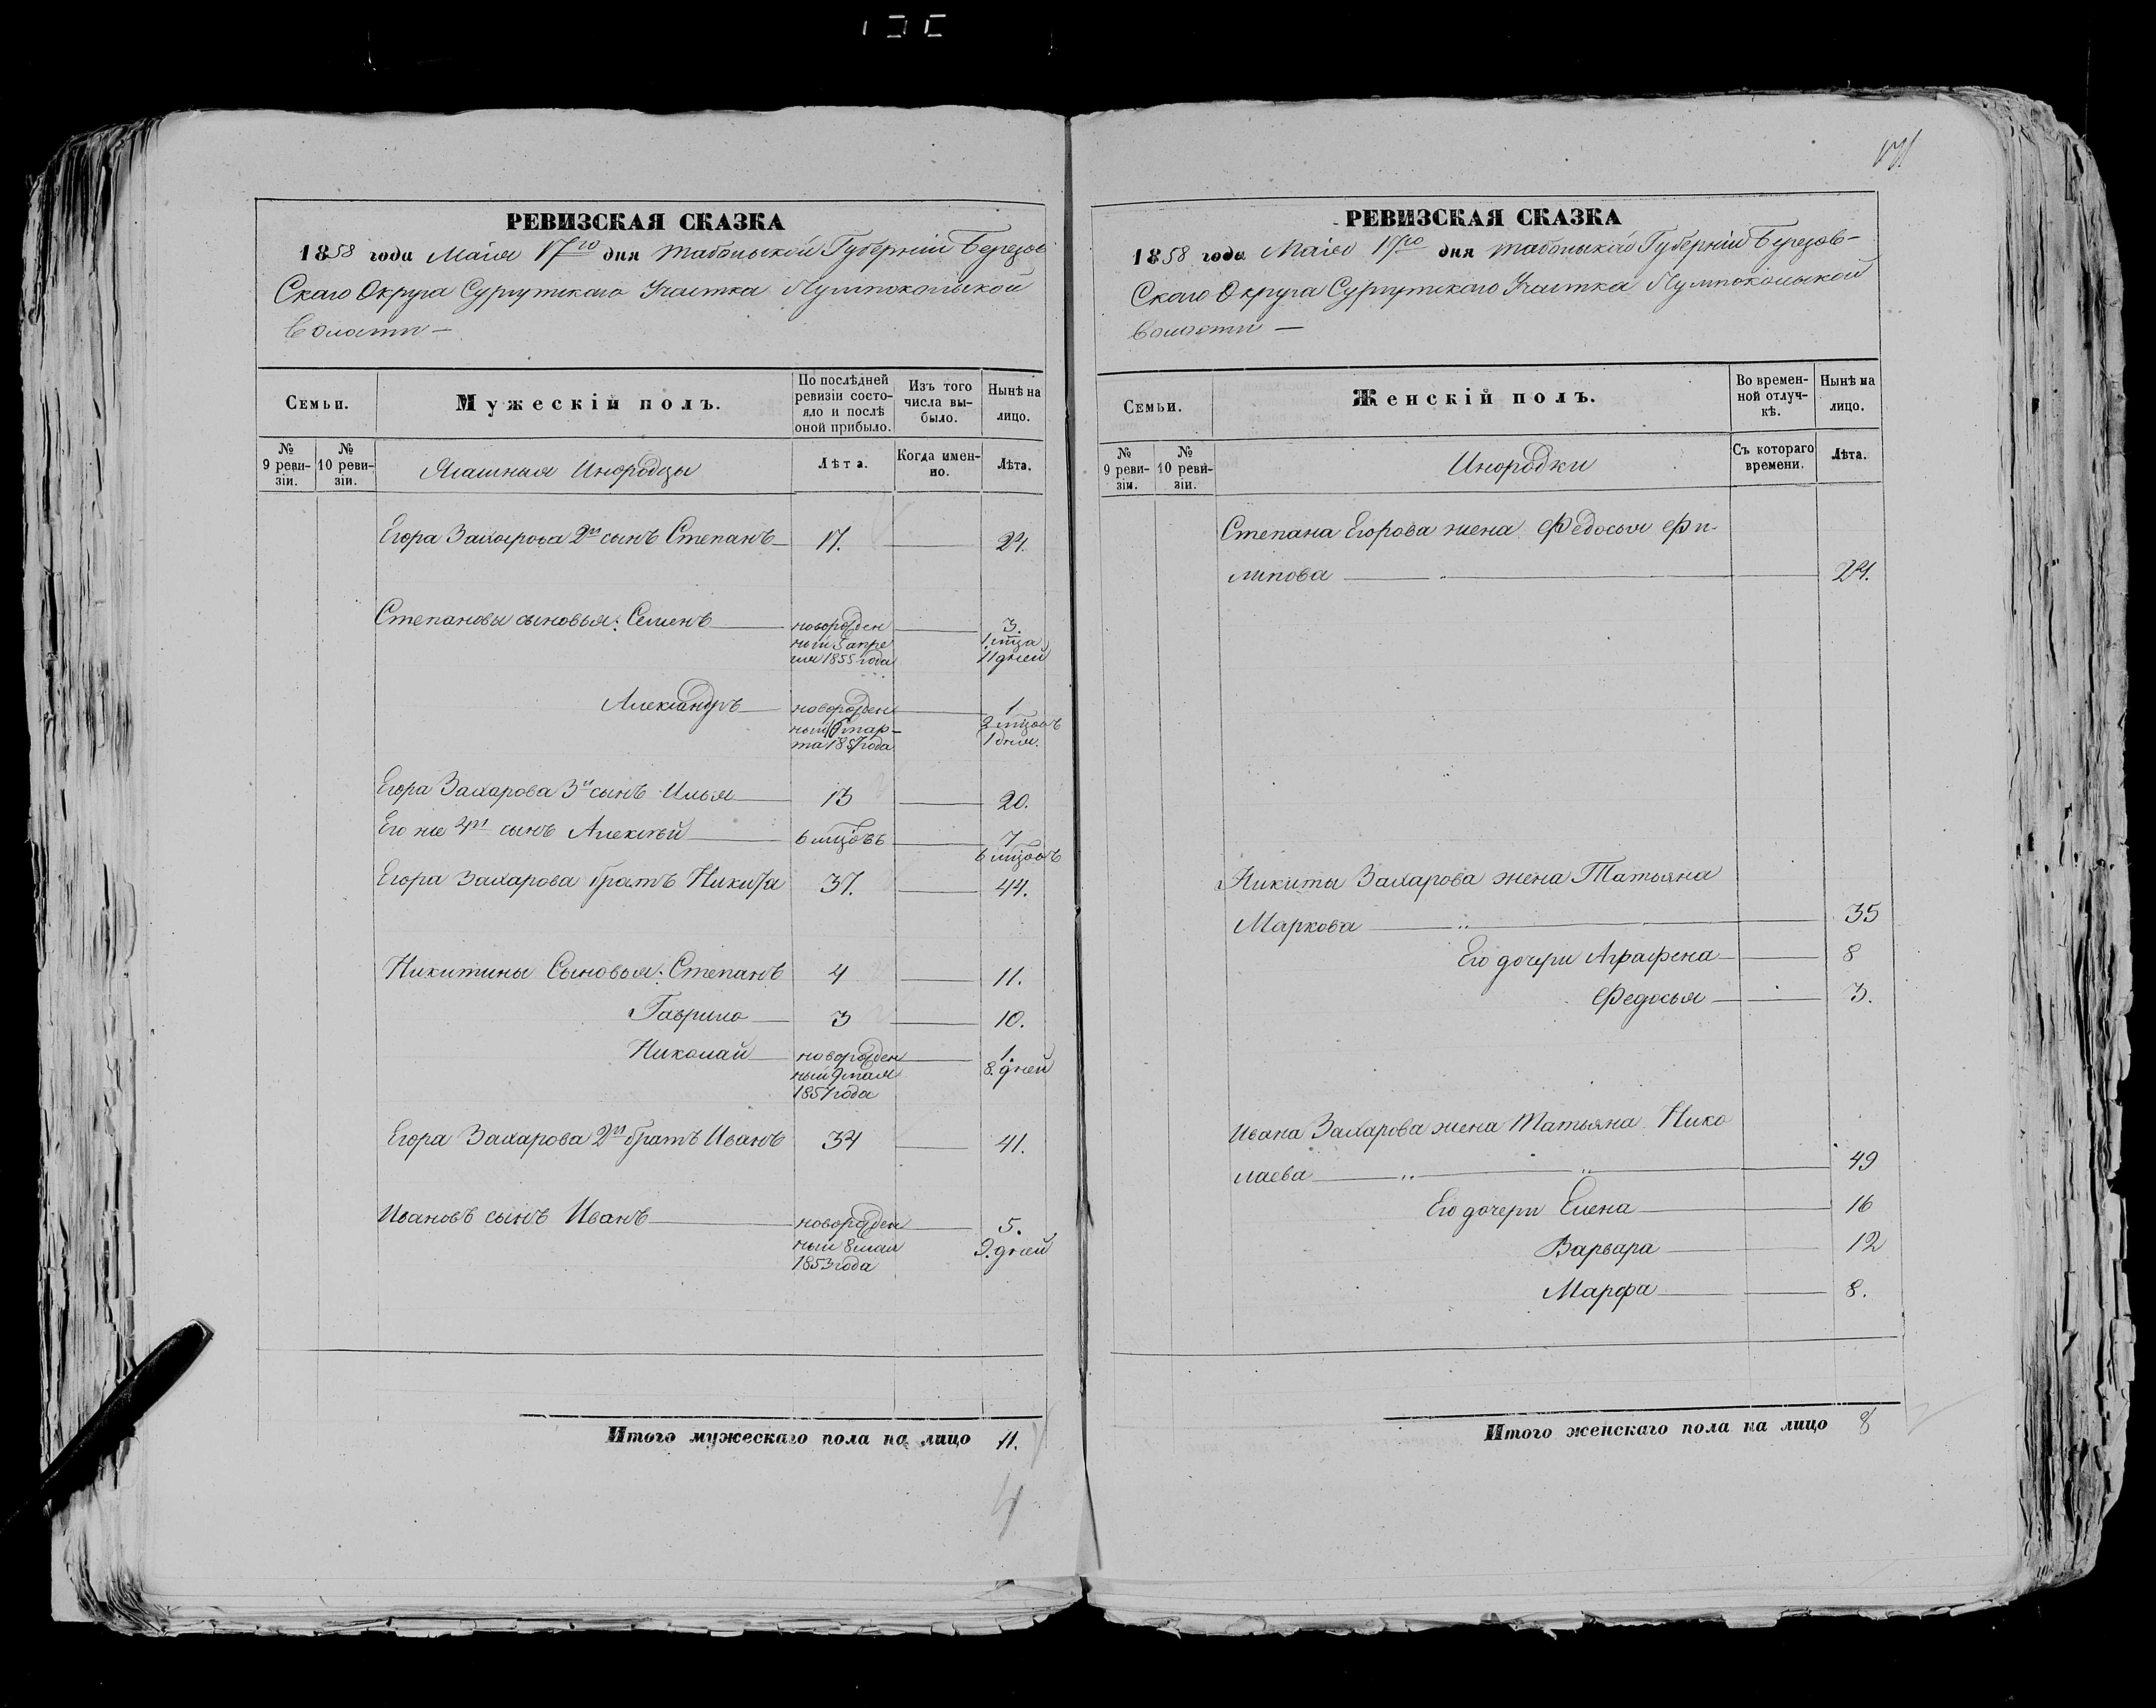 171
РЕВИЗСКАЯ СКАЗКА
1858 года Маія 17го дня Тобольской Губерніи Березов
Скаго Округа Сургутскаго Участка Пумпокольской
Волости —
Семьи.
Мужескій полъ.
По послѣдней
ревизіи состо-
яло и послѣ
оной прибыло.
Изъ того
числа вы-
было.
Нынѣ на
лицо.
№
9 реви-
зіи.
№
10 реви-
зіи.
Ясашныя Инородцы
Лѣта.
Когда имен-
но.
Лѣта.
Егора Захарова 2й сынъ Степанъ — 17. — 24.
Степановы сыновья: Семенъ — новорожден — 3.
ный 5 апре 1 мца
ля 1855 года 11 дней
Александръ — новорожден — 1
ный 16 мар- 2 мцовъ
та 1857 года 1 дня.
Егора Захарова 3й сынъ Илья — 13 — 20.
Его же 4й сынъ Алексѣй — 6 мцовъ — 7
6 мцовъ
Егора Захарова братъ Никита 37. — 44.
Никитины Сыновья: Степанъ 4 — 11.
Гаврило — 3 — 10.
Николай — новорожден — 1.
ный 9 мая 8. дней
1857 года
Егора Захарова 2й братъ Иванъ 34 — 41.
Ивановъ сынъ Иванъ — новорожден — 5.
ный 8 мая 9. дней
1853 года
Итого мужескаго пола на лицо 11.
РЕВИЗСКАЯ СКАЗКА
1858 года Маія 17го дня Тобольской Губерніи Березов-
Скаго Округа Сургутскаго Участка Пумпокольской
Волости —
Семьи.
Женскій полъ.
Во времен-
ной отлуч-
кѣ.
Нынѣ на
лицо.
№
9 реви-
зіи.
№
10 реви-
зіи.
Инородки
Съ котораго
времени.
Лѣта.
Степана Егорова жена Федосья Фи-
липова — 24.
Никиты Захарова жена Татьяна
Маркова — 35
Его дочери Аграфена — 8
Федосья — 3.
Ивана Захарова жена Татьяна Нико
лаева — 49
Его дочери Елена — 16
Варвара — 12
Марфа — 8.
Итого женскаго пола на лицо 8